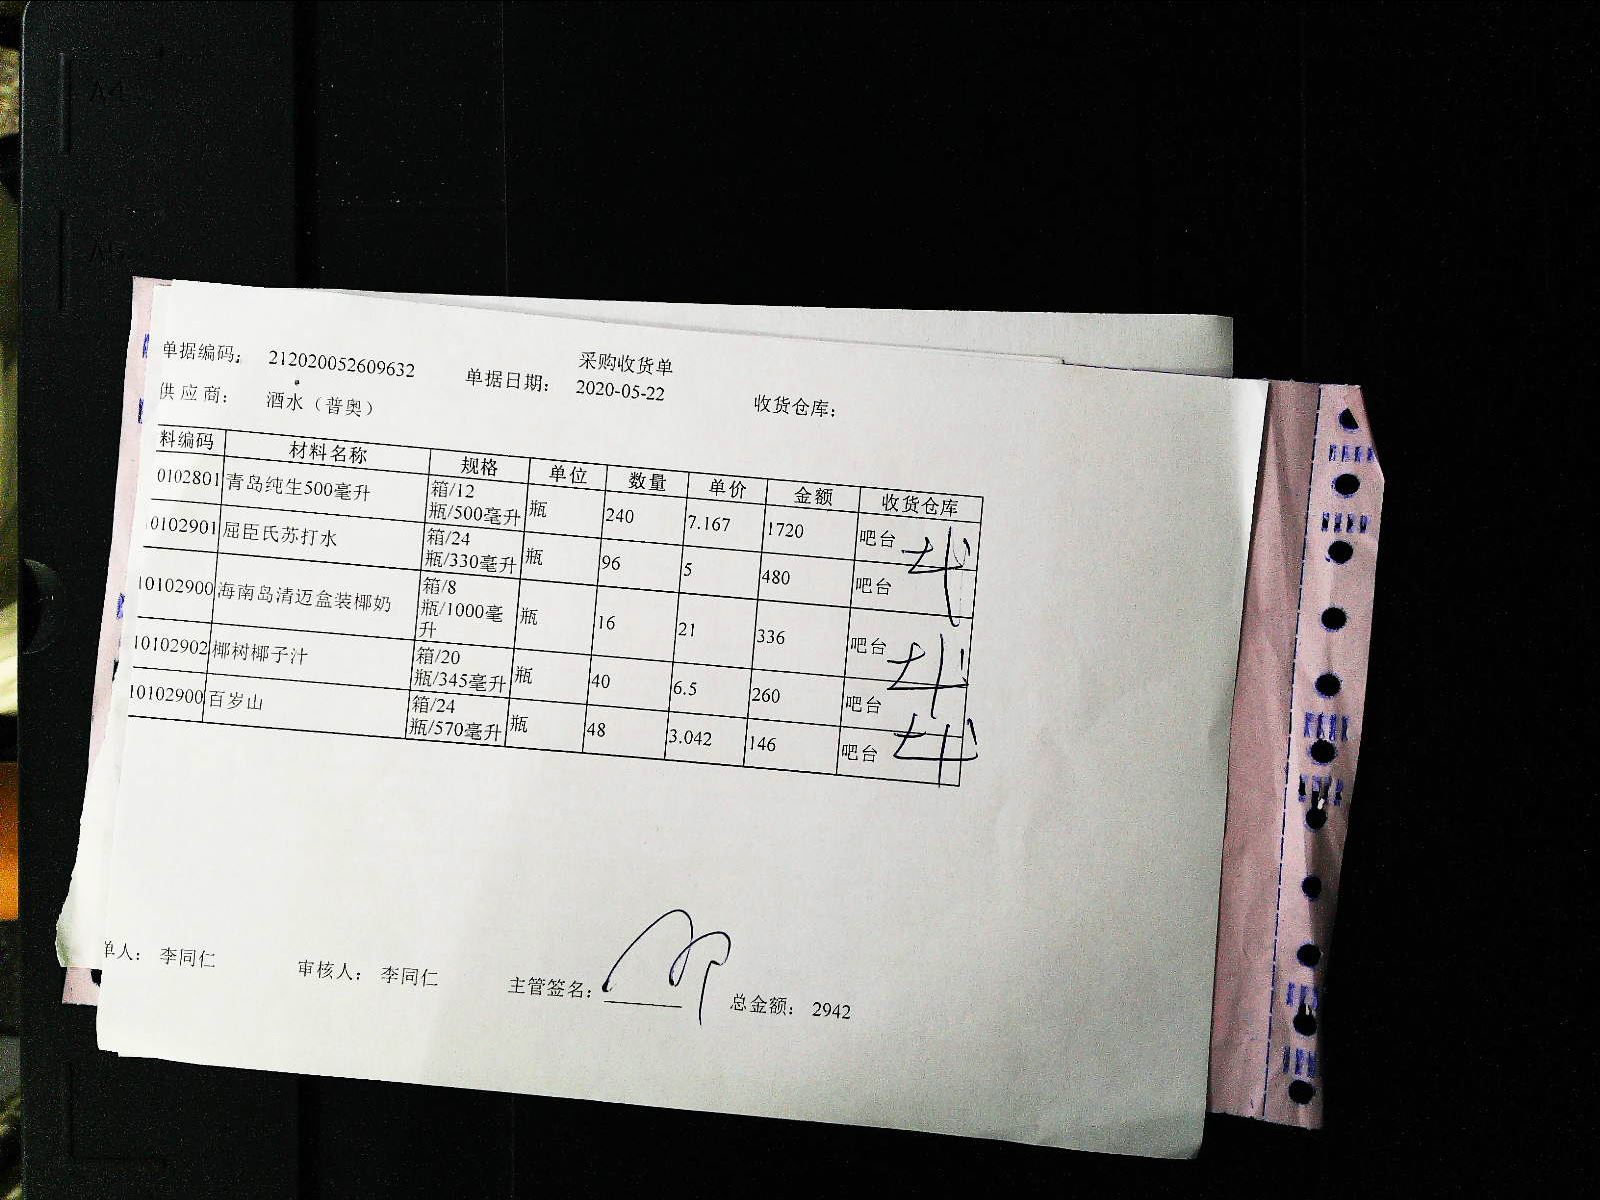 采购收货单
单据编码： 212020052609632 单据日期： 2020-05-22 收货仓库：
供应商： 酒水（普奥）
料编码 材料名称 规格 单位 数量 单价 金额 收货仓库
0102801 青岛纯生500毫升 箱/12瓶/500毫升 瓶 240 7.167 1720 吧台
10102901 屈臣氏苏打水 箱/24瓶/330毫升 瓶 96 5 480 吧台
10102900 海南岛清迈盒装椰奶 箱/8瓶/1000毫升 瓶 16 21 336 吧台
10102902 椰树椰子汁 箱/20瓶/345毫升 瓶 40 6.5 260 吧台
10102900 百岁山 箱/24瓶/570毫升 瓶 48 3.042 146 吧台
单人： 李同仁 审核人： 李同仁 主管签名： 总金额： 2942